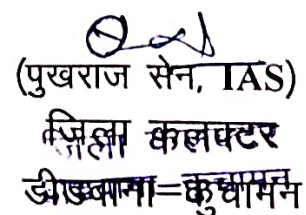 (पुखराज सेन, IAS)
जिला कलक्टर
डीडवाना=कुचामन